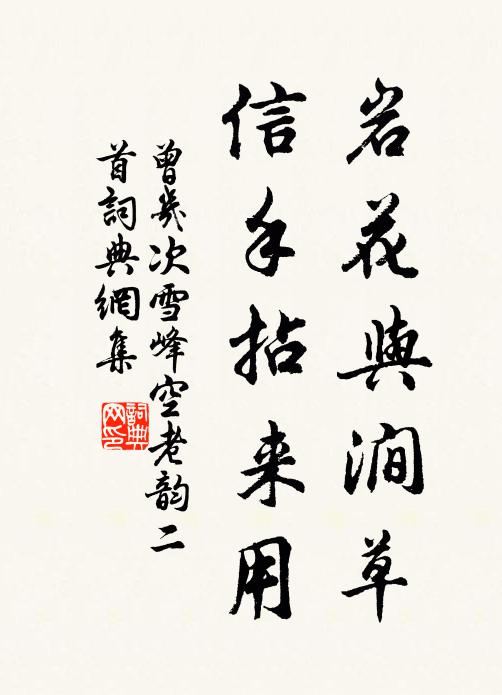 岩花與澗草
信手拈来用
曾幾次雪峰空老韵二
首詞典網集
詞典网印